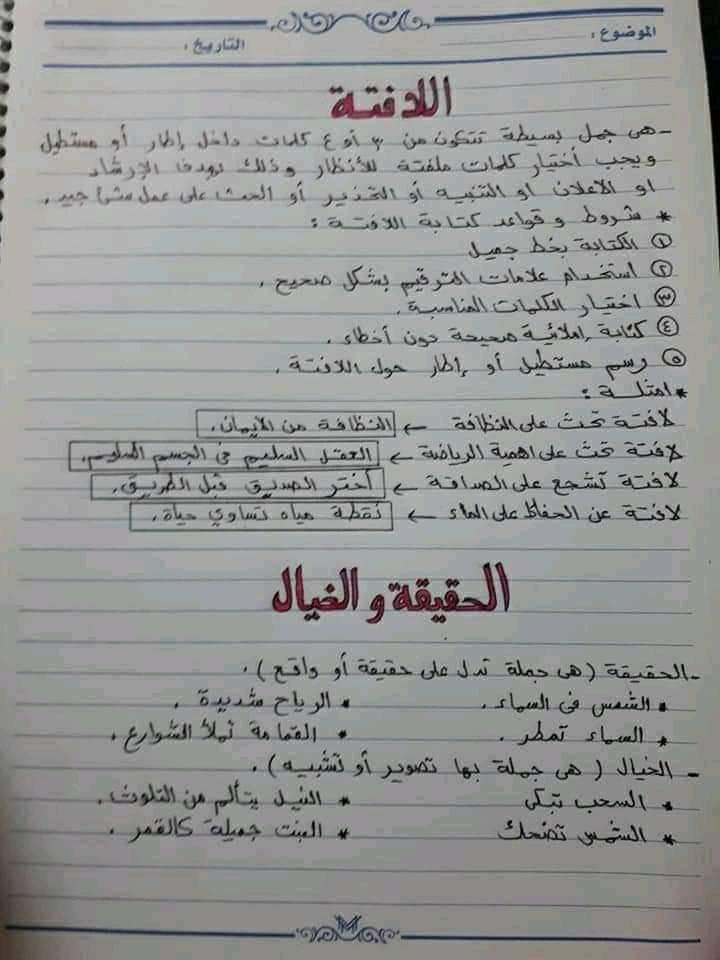 الموضوع : التاريخ :
اللافتة
- هى جمل بسيطة تتكون من ٣ أو ٤ كلمات داخل إطار أو مستطيل
ويجب أختيار كلمات ملفتة للأنظار وذلك بهدف الإرشاد
او الاعلان او التنبيه أو التحذير أو الحث على عمل شئ جيد .
* شروط و قواعد كتابة اللافتة :
① الكتابة بخط جميل
② استخدام علامات الترقيم بشكل صحيح .
③ اختيار الكلمات المناسبة .
④ كتابة إملائية صحيحة دون أخطاء .
⑤ رسم مستطيل أو إطار حول اللافتة .
* امثلة :
لافتة تحث على النظافة ← النظافة من الايمان .
لافتة تحث على اهمية الرياضة ← العقل السليم فى الجسم السليم .
لافتة تشجع على الصداقة ← أختر الصديق قبل الطريق .
لافتة عن الحفاظ على الماء ← نقطة مياه تساوي حياة .
الحقيقة و الخيال
- الحقيقة ( هى جملة تدل على حقيقة أو واقع ) .
* الشمس فى السماء . * الرياح شديدة .
* السماء تمطر . * القمامة تملأ الشوارع .
- الخيال ( هى جملة بها تصوير أو تشبيه ) .
* السحب تبكى * النيل يتألم من التلوث .
* الشمس تضحك * البنت جميلة كالقمر .